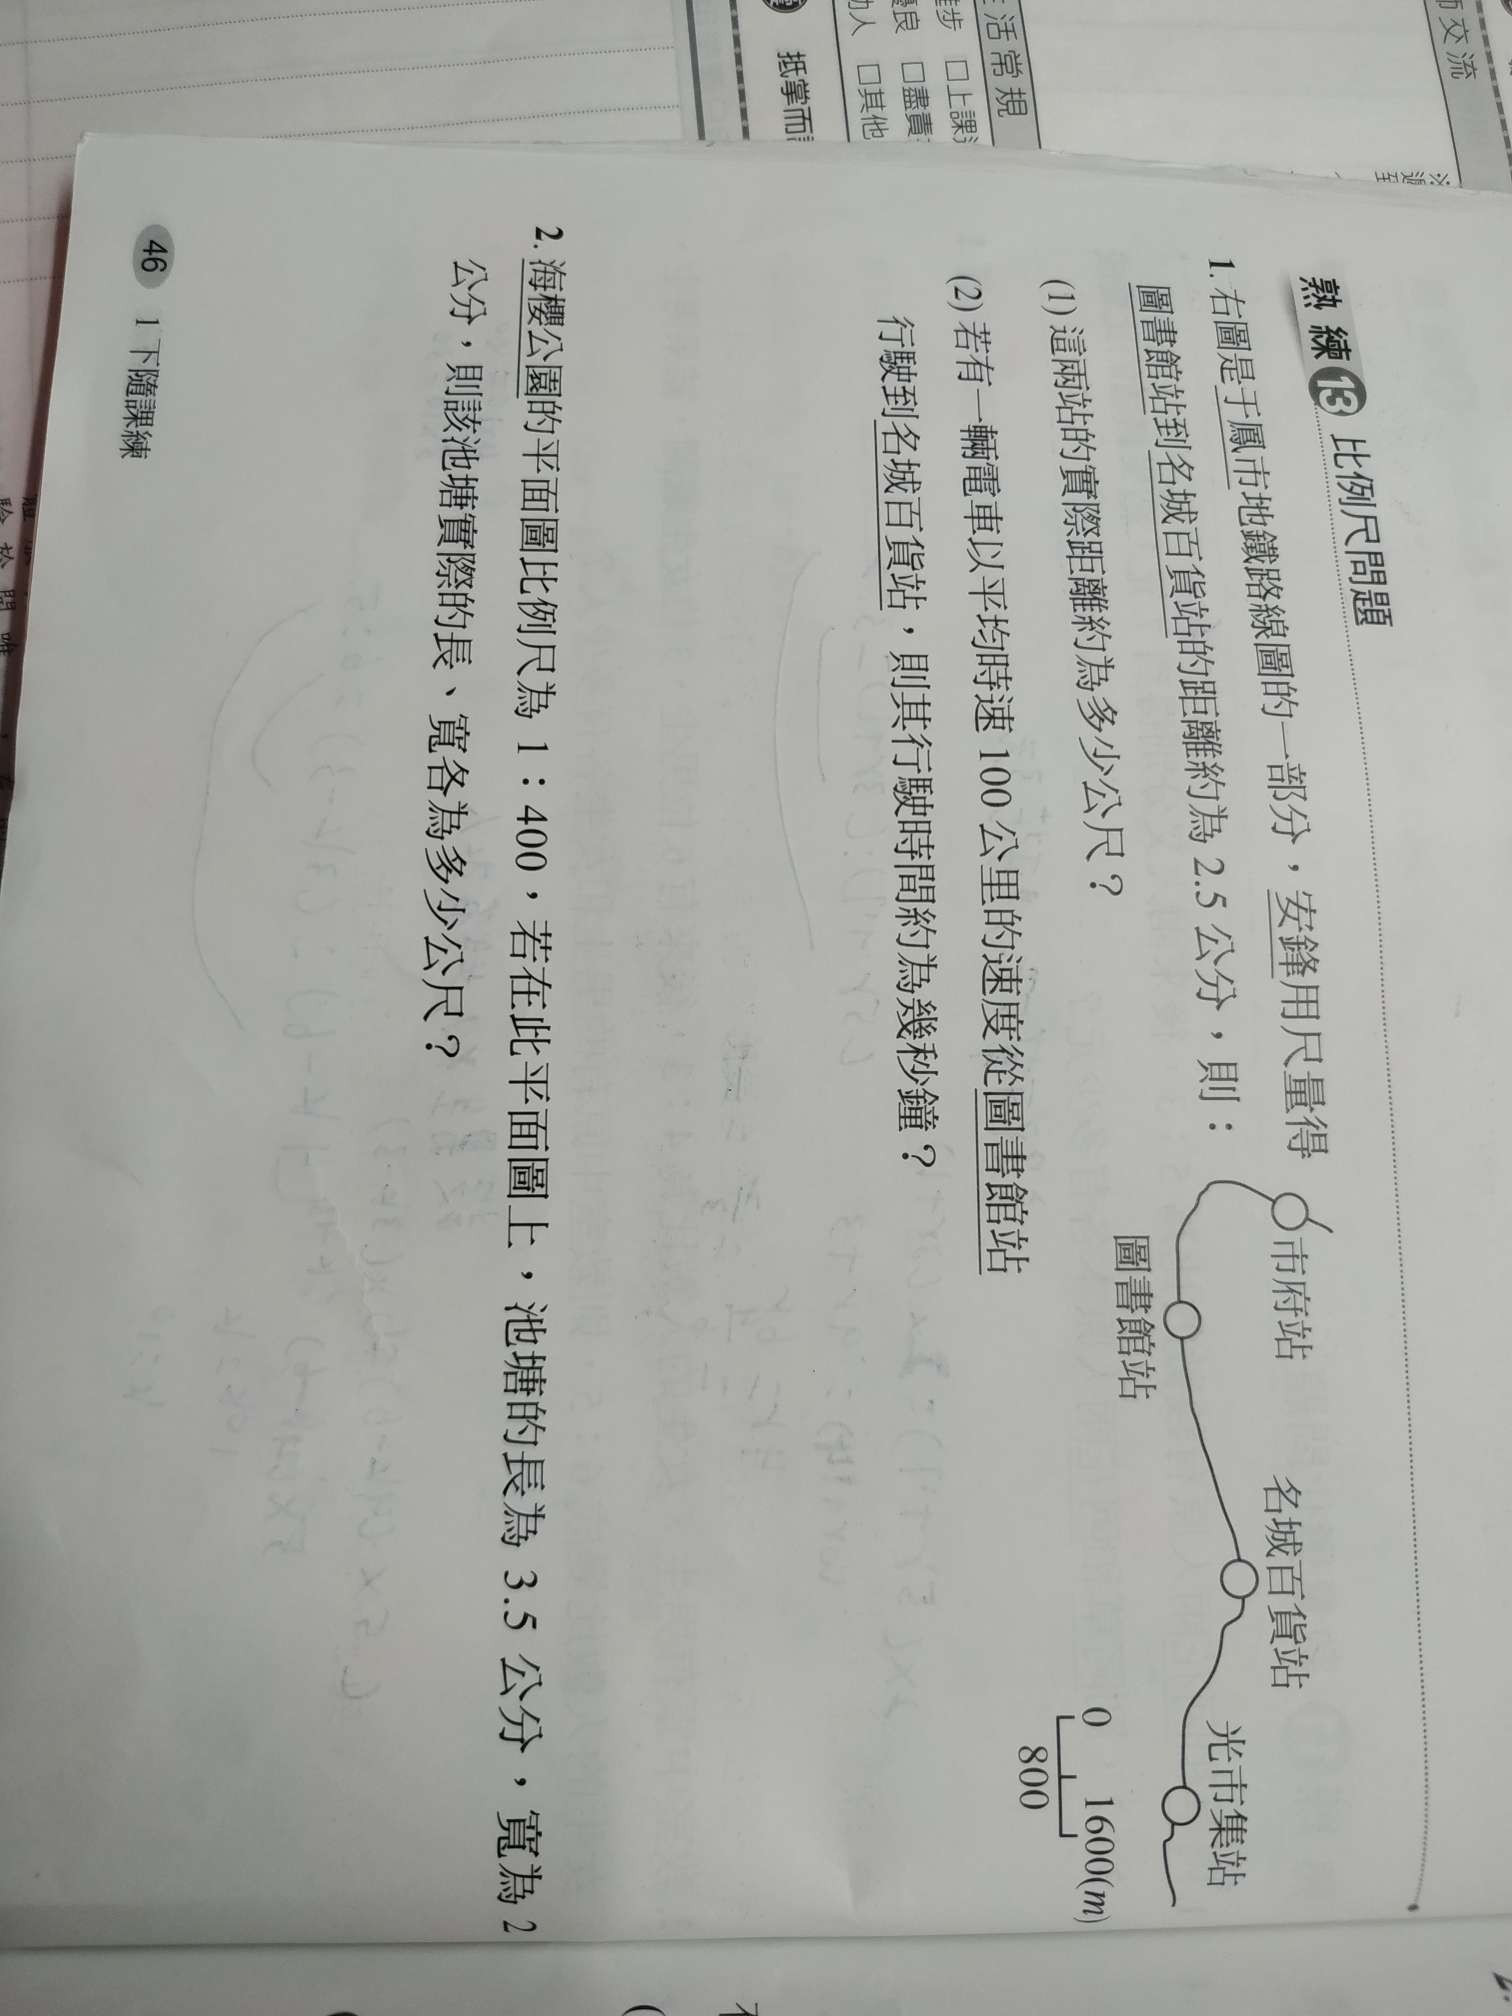 師交流
生活常規
進步 □上課
優良 □盡責
助人 □其他
抵掌而
熟練13 比例尺問題
1. 右圖是于鳳市地鐵路線圖的一部分，安鋒用尺量得
圖書館站到名城百貨站的距離約為 2.5 公分，則：
市府站
名城百貨站
光市集站
圖書館站
0 1600(m)
800
(1) 這兩站的實際距離約為多少公尺？
(2) 若有一輛電車以平均時速 100 公里的速度從圖書館站
行駛到名城百貨站，則其行駛時間約為幾秒鐘？
2. 海櫻公園的平面圖比例尺為 1：400，若在此平面圖上，池塘的長為 3.5 公分，寬為 2
公分，則該池塘實際的長、寬各為多少公尺？
46 1下隨課練